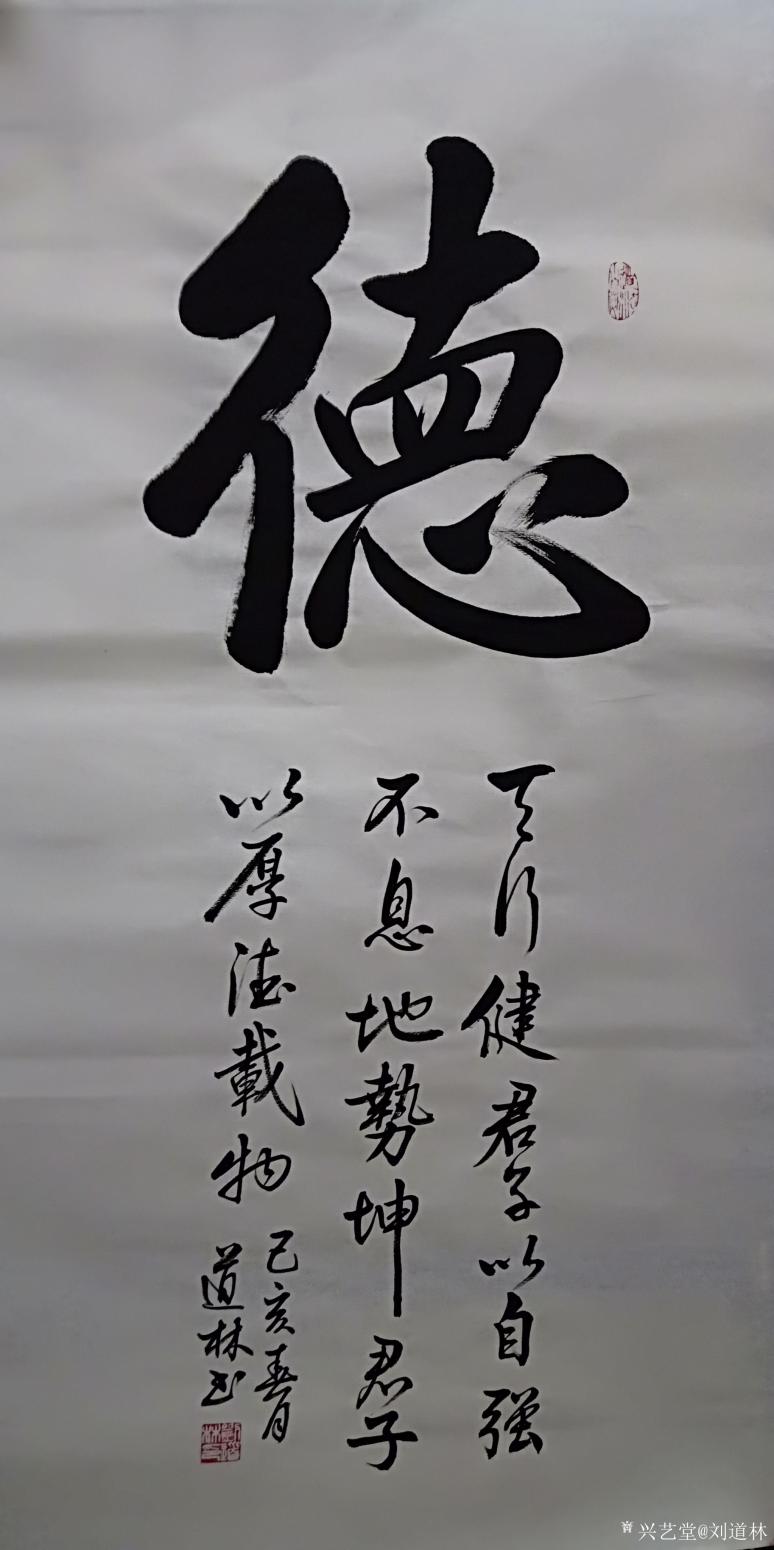 德
天行健君子以自强
不息地勢坤君子
以厚德載物
己亥春月
道林书
兴艺堂@刘道林